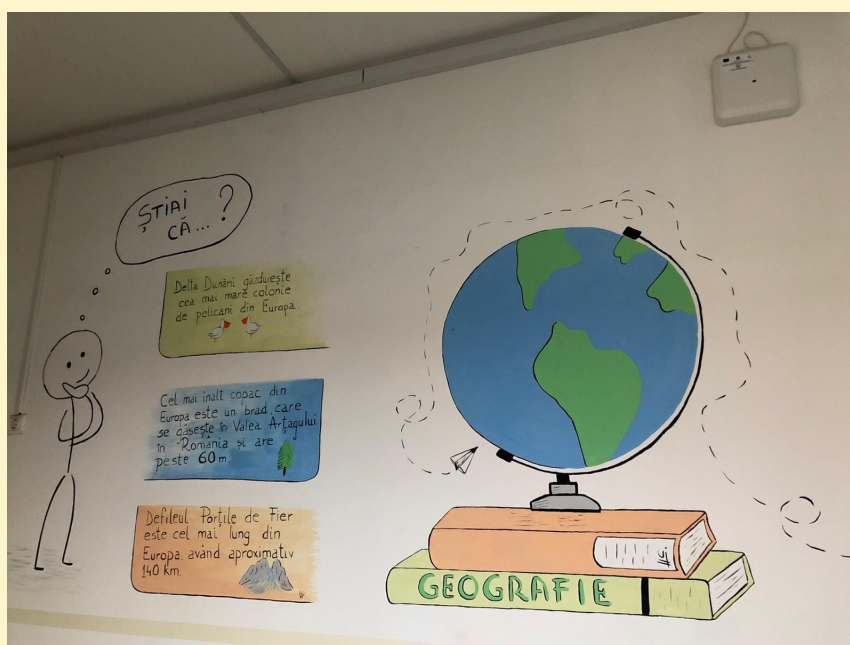 ȘTIAI
CĂ...?
Delta Dunării găzduiește
cea mai mare colonie
de pelicani din Europa.
Cel mai înalt copac din
Europa este un brad care
se găsește în Valea Arțagului
în România și are
peste 60 m.
Defileul Porțile de Fier
este cel mai lung din
Europa, având aproximativ
140 km.
GEOGRAFIE